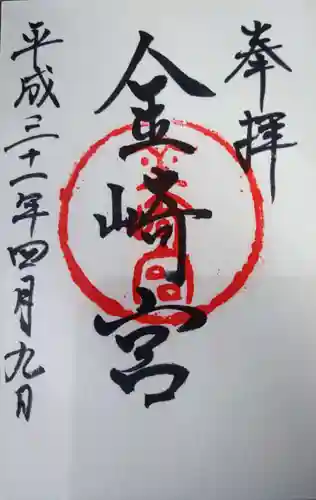 奉拝
金崎宮
平成三十一年四月九日